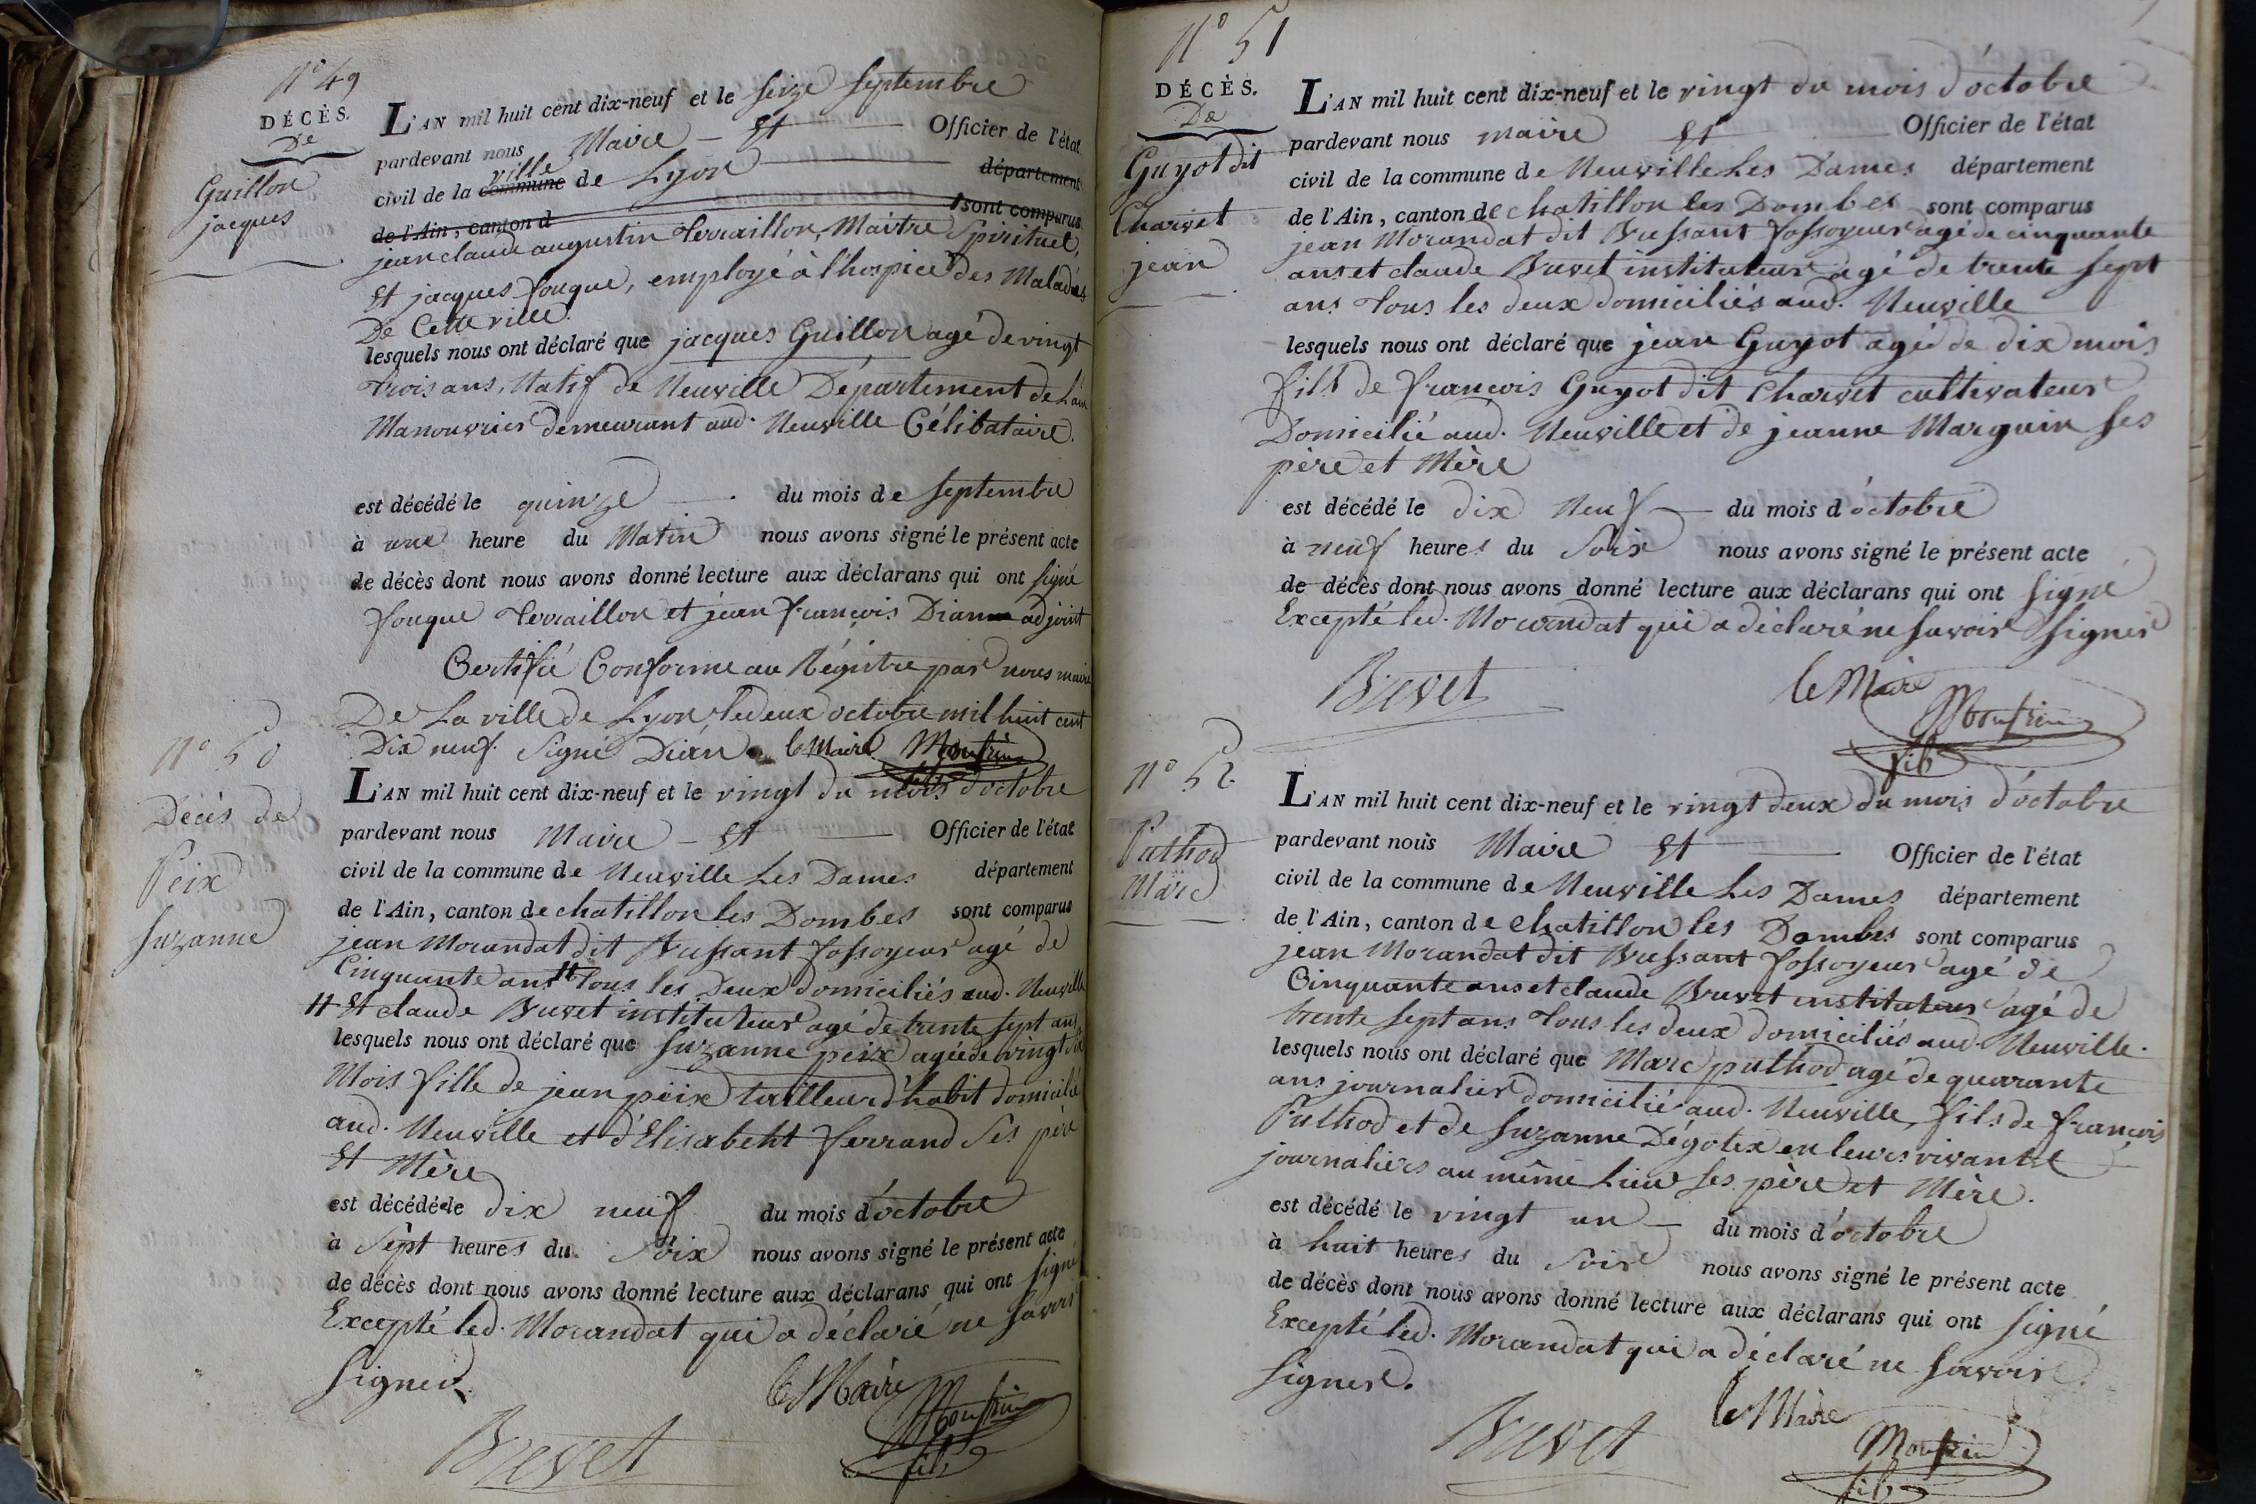 N° 49
DÉCÈS.
De
Guillon
jacques
L'AN mil huit cent dix-neuf et le seize septembre
pardevant nous Maire - Et Officier de l'état
civil de la commune ville de Lyon département
de l'Ain, canton d sont comparus
jean claude augustin Terraillon, Maitre Spirituel,
Et jacques fouque, employé à l'hospice des Malades
De Cette ville.
lesquels nous ont déclaré que jacques Guillon agé de vingt
trois ans, Natif de Neuville Département de L'ain
Manouvrier demeurant aud. Neuville Célibataire.
est décédé le quinze du mois de septembre
à une heure du Matin nous avons signé le présent acte
de décès dont nous avons donné lecture aux déclarans qui ont signé
fouque Terraillon et jean françois Dian adjoint
Certifié Conforme au Régistre par nous maire
De La ville de Lyon le deux octobre mil huit cent
Dix neuf. Signé Dian le Maire Monfrin
fils
N° 50
Décès de
Peix
suzanne
L'AN mil huit cent dix-neuf et le vingt du mois d'octobre
pardevant nous Maire - Et Officier de l'état
civil de la commune de Neuville Les Dames département
de l'Ain, canton de chatillon les Dombes sont comparus
jean Morandat dit Bussant fossoyeur agé de
Cinquante ans # Tous les Deux domiciliés aud. Neuville
# Et claude Buvet instituteur agé de trente sept ans
lesquels nous ont déclaré que suzanne peix agée de vingt
Mois fille de jean peix tailleur d'habit domicilié
aud. Neuville et d'Elisabeht ferrand ses père
Et Mère
est décédée le dix neuf du mois d'octobre
à sept heures du Soir nous avons signé le présent acte
de décès dont nous avons donné lecture aux déclarans qui ont signé
Excepté led. Morandat qui a déclaré ne savoir
signer.
le Maire
Buvet Monfrin
fils
N° 51
DÉCÈS.
De
Guyot dit
Charvet
jean
L'AN mil huit cent dix-neuf et le vingt du mois d'octobre
pardevant nous maire Et Officier de l'état
civil de la commune de Neuville Les Dames département
de l'Ain, canton de chatillon les Dombes sont comparus
jean Morandat dit Bussant fossoyeur agé de cinquante
ans et claude Buvet instituteur agé de trente sept
ans Tous les deux domiciliés aud. Neuville
lesquels nous ont déclaré que jean Guyot agé de dix mois
fils de françois Guyot dit Charvet cultivateur
Domicilié aud. Neuville et de jeanne Marguin ses
père et Mère
est décédé le dix Neuf du mois d'octobre
à neuf heures du Soir nous avons signé le présent acte
de décès dont nous avons donné lecture aux déclarans qui ont signé
Excepté led. Morandat qui a déclaré ne savoir signer
Buvet le Maire
Monfrin
fils
N° 52.
Puthod
Marc
L'AN mil huit cent dix-neuf et le vingt deux du mois d'octobre
pardevant nous Maire Et Officier de l'état
civil de la commune de Neuville Les Dames département
de l'Ain, canton de chatillon les Dombes sont comparus
jean Morandat dit Bussant fossoyeur agé de
Cinquante ans et claude Buvet instituteur agé de
trente sept ans Tous les deux domiciliés aud. Neuville.
lesquels nous ont déclaré que Marc puthod agé de quarante
ans journalier domicilié aud. Neuville, fils de françois
Puthod et de suzanne Dégotex en leurs vivants
journaliers au même Lieu ses père et Mère.
est décédé le vingt un du mois d'octobre
à huit heures du soir nous avons signé le présent acte
de décès dont nous avons donné lecture aux déclarans qui ont signé
Excepté led. Morandat qui a déclaré ne savoir
signer.
Buvet le Maire
Monfrin
fils